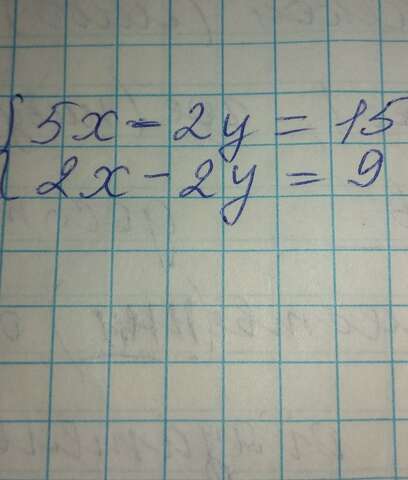 { 5x - 2y = 15
2x - 2y = 9